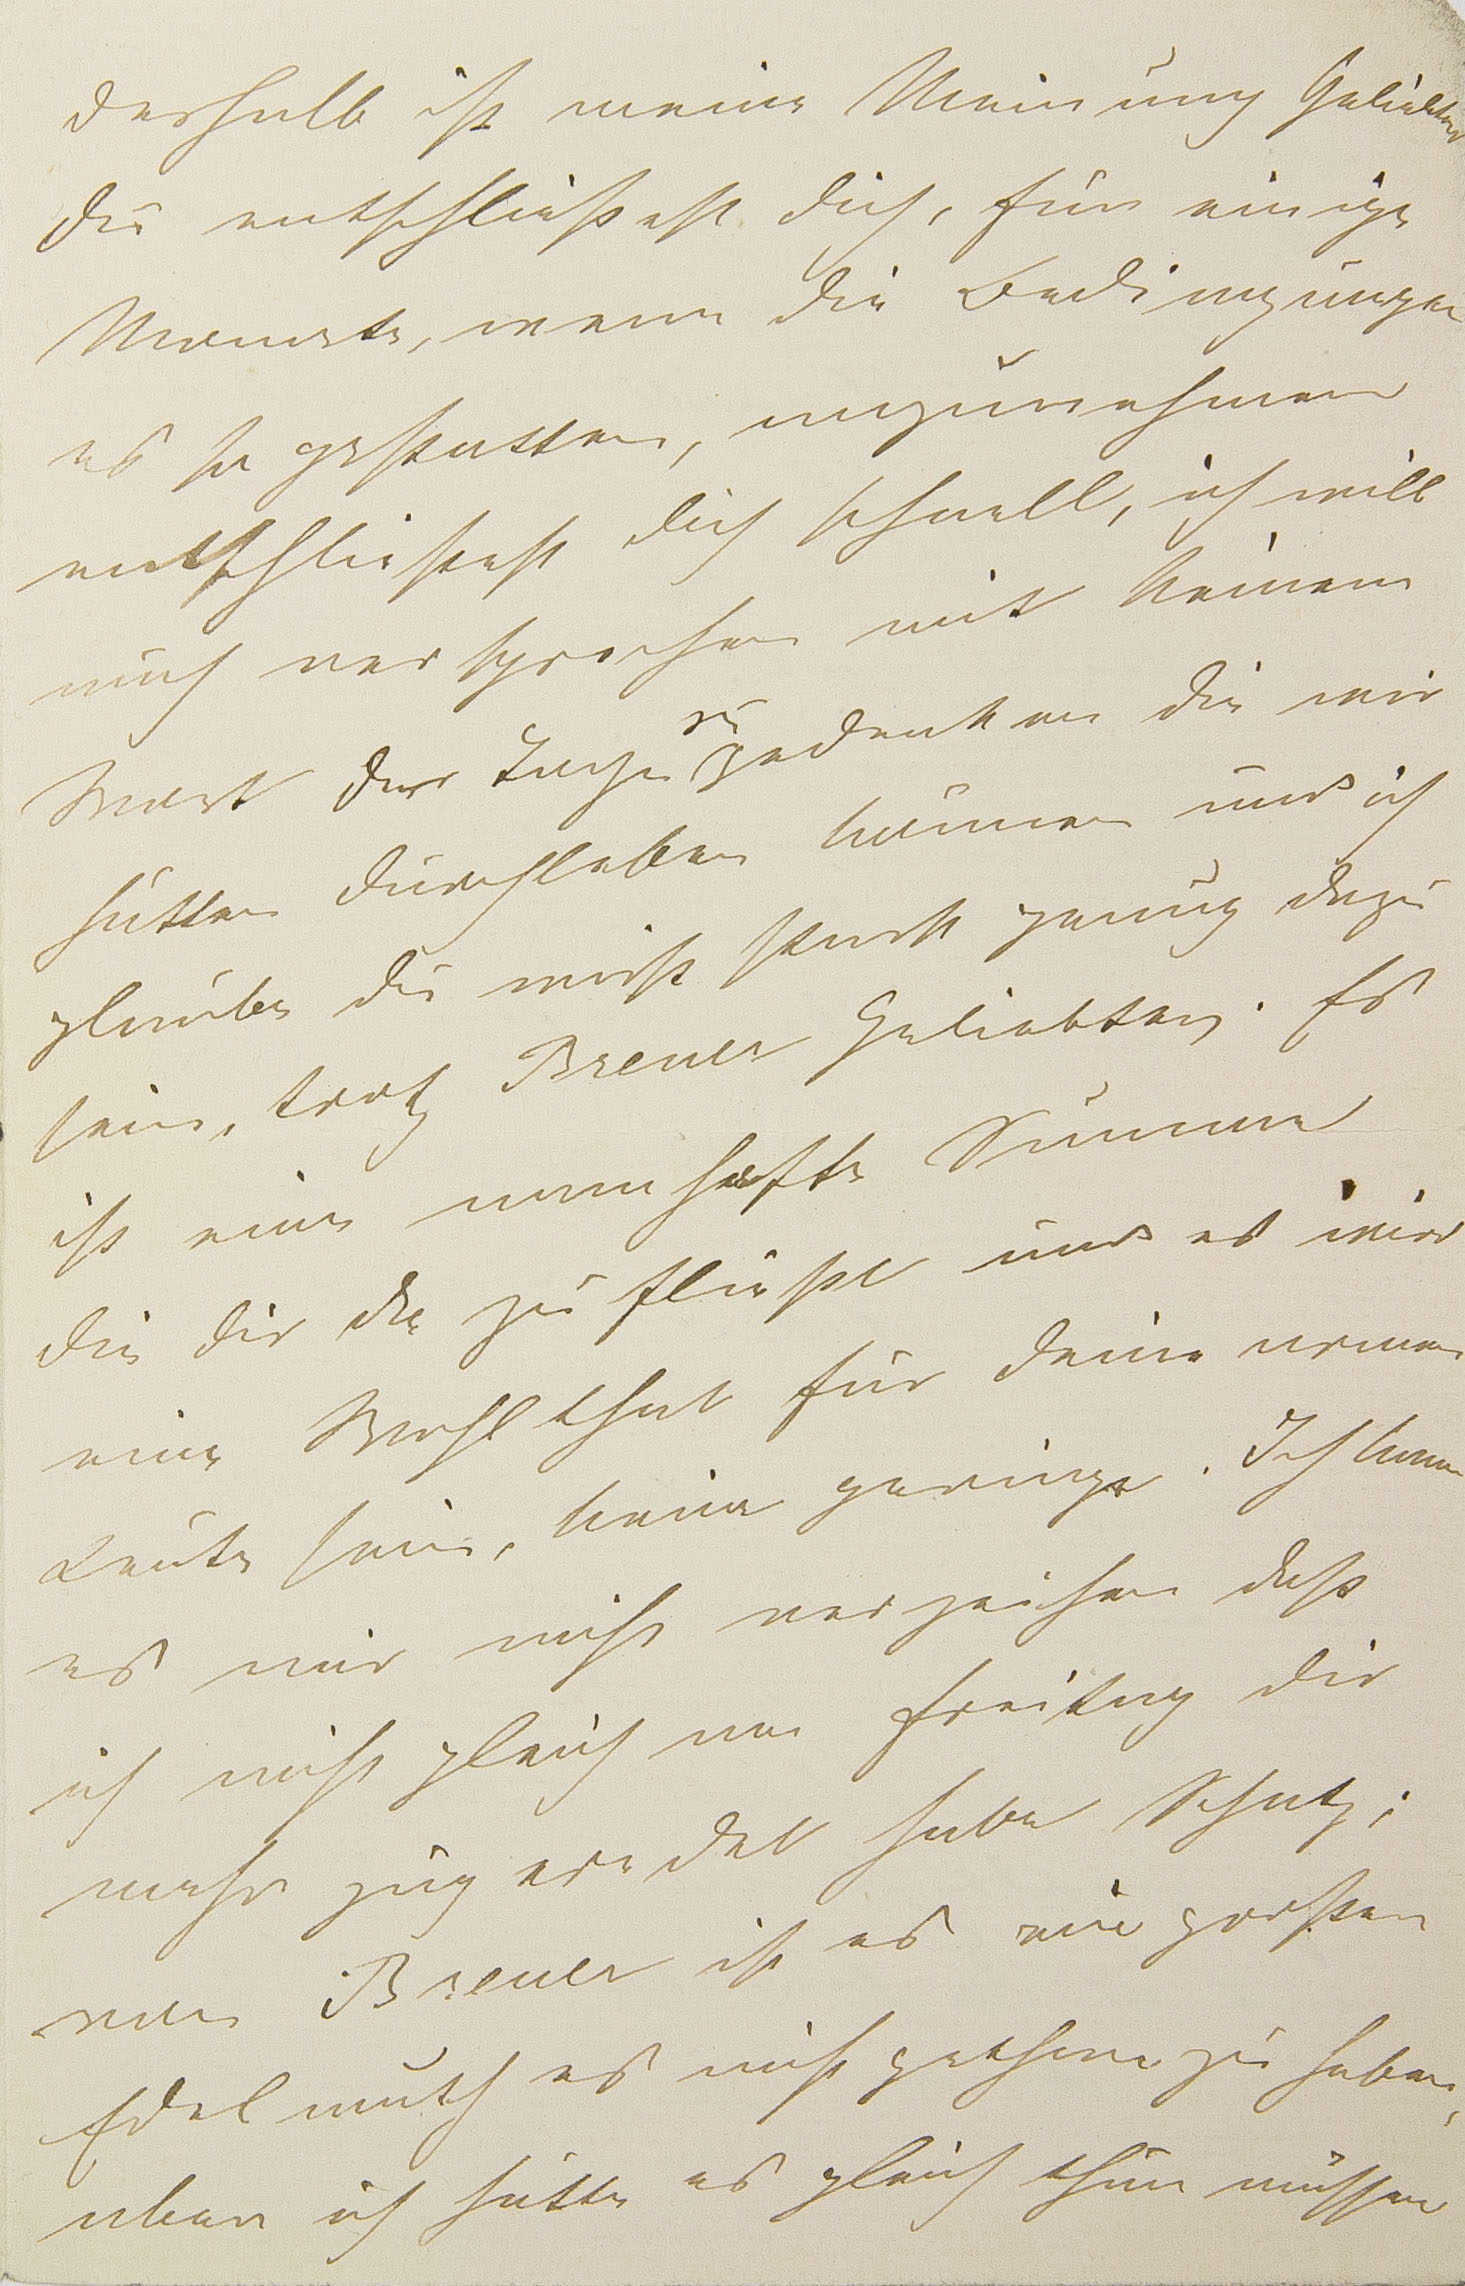 deshalb ist meine Meinung Geliebter
du entschließest dich, für einige
Monate, wenn die Bedingungen
es so gestatten, anzunehmen
entschließest dich schnell, ich will
mich versprechen mit keinem
Wort der Tage zu gedenken die wir
hätten durchleben können und ich
glaube du wirst stark genug dazu
sein, trotz Breuer Geliebter. Es
ist eine namhafte Summe
die dir da zu fließt und es wird
eine Wohlthat für deine armen
Leute sein, keine geringe. Ich kann
es mir nicht verzeihen daß
ich nicht gleich am Freitag dir
mehr zugeredet habe Schatz;
von Breuer ist es ein großer
Edelmuth es nicht gethan zu haben,
aber ich hätte es gleich thun müssen